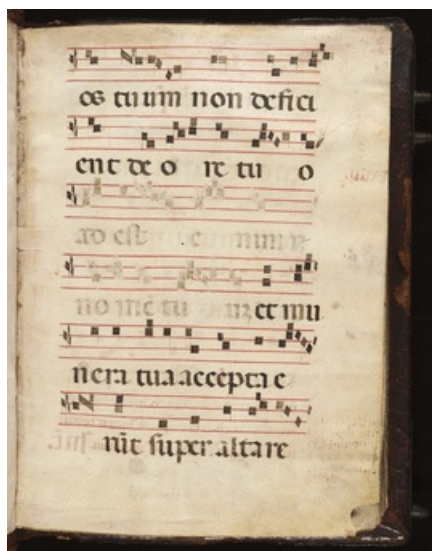 os tuum non defici
ent de o re tu o
ad est
no me tu et mu
nera tua accepta e
rūt super altare